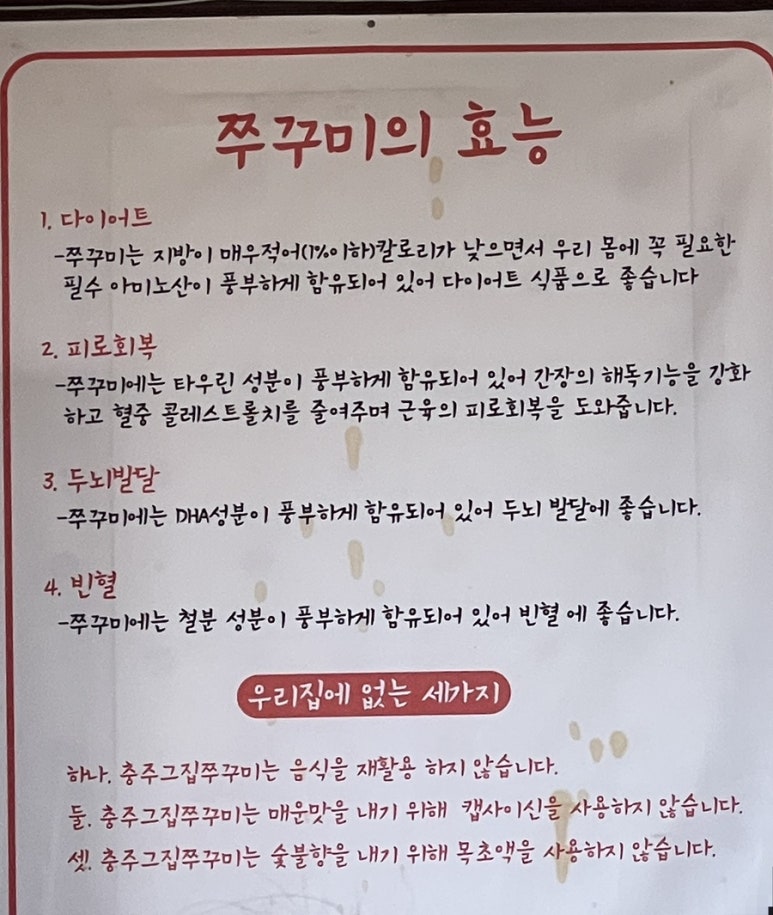 쭈꾸미의 효능
1. 다이어트
-쭈꾸미는 지방이 매우적어(1%이하)칼로리가 낮으면서 우리 몸에 꼭 필요한
필수 아미노산이 풍부하게 함유되어 있어 다이어트 식품으로 좋습니다
2. 피로회복
-쭈꾸미에는 타우린 성분이 풍부하게 함유되어 있어 간장의 해독기능을 강화
하고 혈중 콜레스트롤치를 줄여주며 근육의 피로회복을 도와줍니다.
3. 두뇌발달
-쭈꾸미에는 DHA성분이 풍부하게 함유되어 있어 두뇌 발달에 좋습니다.
4. 빈혈
-쭈꾸미에는 철분 성분이 풍부하게 함유되어 있어 빈혈 에 좋습니다.
우리집에 없는 세가지
하나. 충주그집쭈꾸미는 음식을 재활용 하지 않습니다.
둘. 충주그집쭈꾸미는 매운맛을 내기 위해 캡사이신을 사용하지 않습니다.
셋. 충주그집쭈꾸미는 숯불향을 내기 위해 목초액을 사용하지 않습니다.